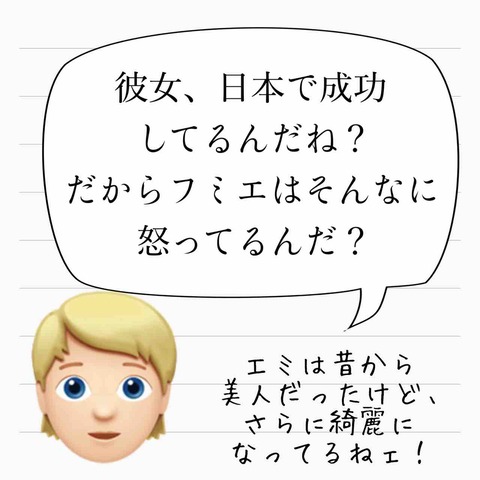 彼女、日本で成功
してるんだね？
だからフミエはそんなに
怒ってるんだ？
エミは昔から
美人だったけど、
さらに綺麗に
なってるねェ！